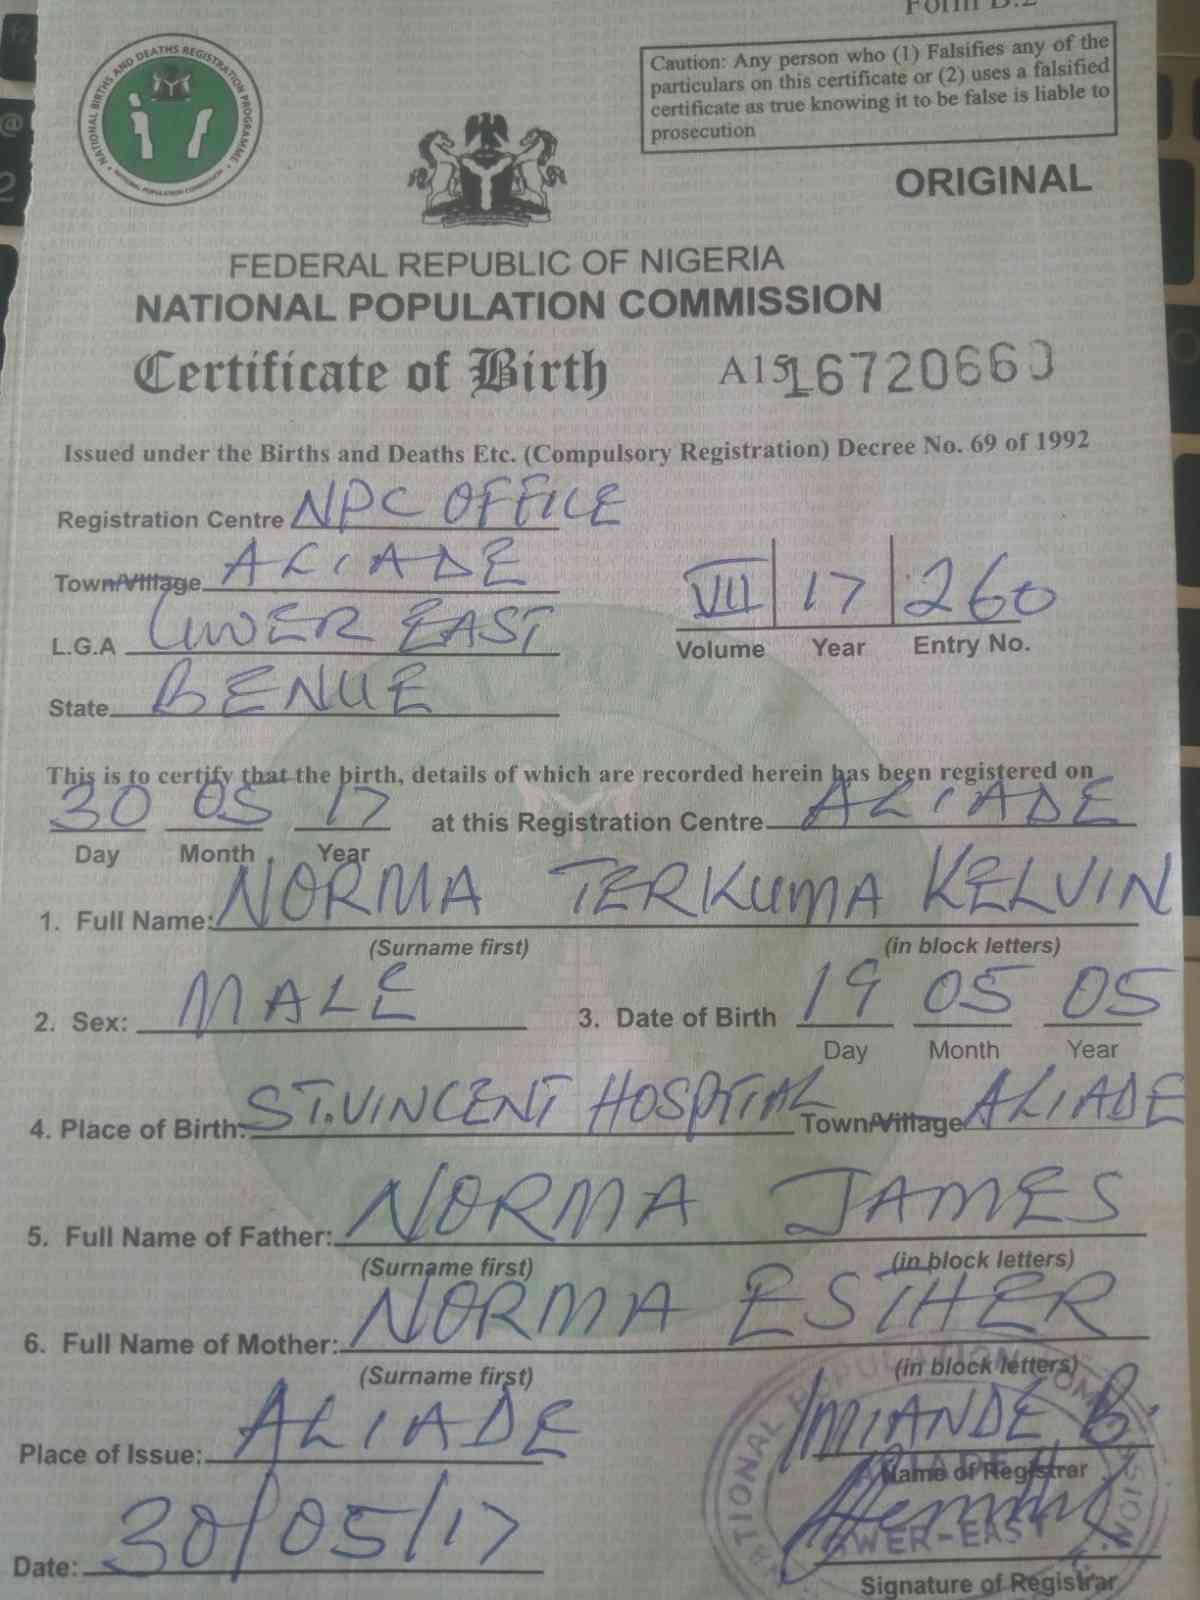 Form B.2
NATIONAL BIRTHS AND DEATHS REGISTRATION PROGRAMME
NATIONAL POPULATION COMMISSION
Caution: Any person who (1) Falsifies any of the
particulars on this certificate or (2) uses a falsified
certificate as true knowing it to be false is liable to
prosecution
ORIGINAL
FEDERAL REPUBLIC OF NIGERIA
NATIONAL POPULATION COMMISSION
Certificate of Birth A15 16720660
Issued under the Births and Deaths Etc. (Compulsory Registration) Decree No. 69 of 1992
Registration Centre NPC OFFICE
Town/Village ALIADE
L.G.A GWER EAST
State BENUE
VII 17 260
Volume Year Entry No.
This is to certify that the birth, details of which are recorded herein has been registered on
30 05 17 at this Registration Centre ALIADE
Day Month Year
1. Full Name: NORMA TERKUMA KELVIN
(Surname first) (in block letters)
2. Sex: MALE 3. Date of Birth 19 05 05
Day Month Year
4. Place of Birth: ST. VINCENT HOSPITAL Town/Village ALIADE
5. Full Name of Father: NORMA JAMES
(Surname first) (in block letters)
6. Full Name of Mother: NORMA ESTHER
(Surname first) (in block letters)
Place of Issue: ALIADE IMIANDE B.
Name of Registrar
Date: 30/05/17
Signature of Registrar
NATIONAL POPULATION COMMISSION
GWER-EAST